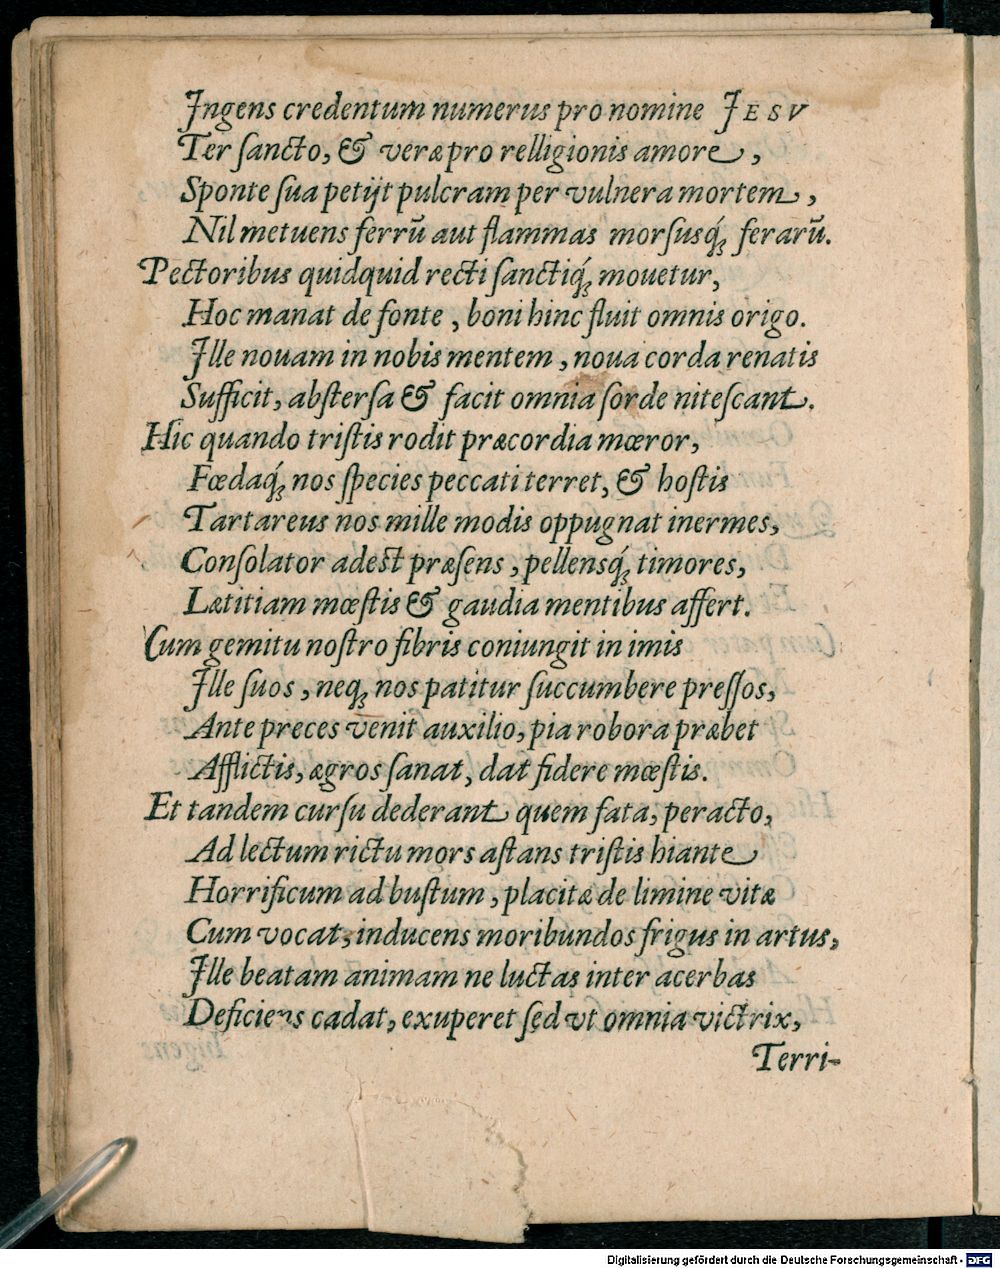 Ingens credentum numerus pro nomine IESV
Ter ſancto, & veræ pro relligionis amore,
Sponte ſua petijt pulcram per vulnera mortem,
Nil metuens ferrū aut flammas morsusq́ꝫ ferarū.
Pectoribus quidquid recti ſanctiq́ꝫ mouetur,
Hoc manat de fonte, boni hinc fluit omnis origo.
Ille nouam in nobis mentem, noua corda renatis
Sufficit, abſterſa & facit omnia ſorde niteſcant.
Hic quando triſtis rodit præcordia mœror,
Fœdaq́ꝫ nos ſpecies peccati terret, & hoſtis
Tartareus nos mille modis oppugnat inermes,
Conſolator adest præſens, pellensq́ꝫ timores,
Lætitiam mœſtis & gaudia mentibus affert.
Cum gemitu noſtro fibris coniungit in imis
Ille ſuos, neqꝫ nos patitur ſuccumbere preſſos,
Ante preces venit auxilio, pia robora præbet
Afflictis, ægros ſanat, dat fidere mœſtis.
Et tandem curſu dederant quem fata, peracto,
Ad lectum rictu mors aſtans triſtis hiante
Horrificum ad buſtum, placitæ de limine vitæ
Cum vocat, inducens moribundos frigus in artus,
Ille beatam animam ne luctas inter acerbas
Deficiens cadat, exuperet ſed vt omnia victrix,
Terri-
Digitalisierung gefördert durch die Deutsche Forschungsgemeinschaft - DFG